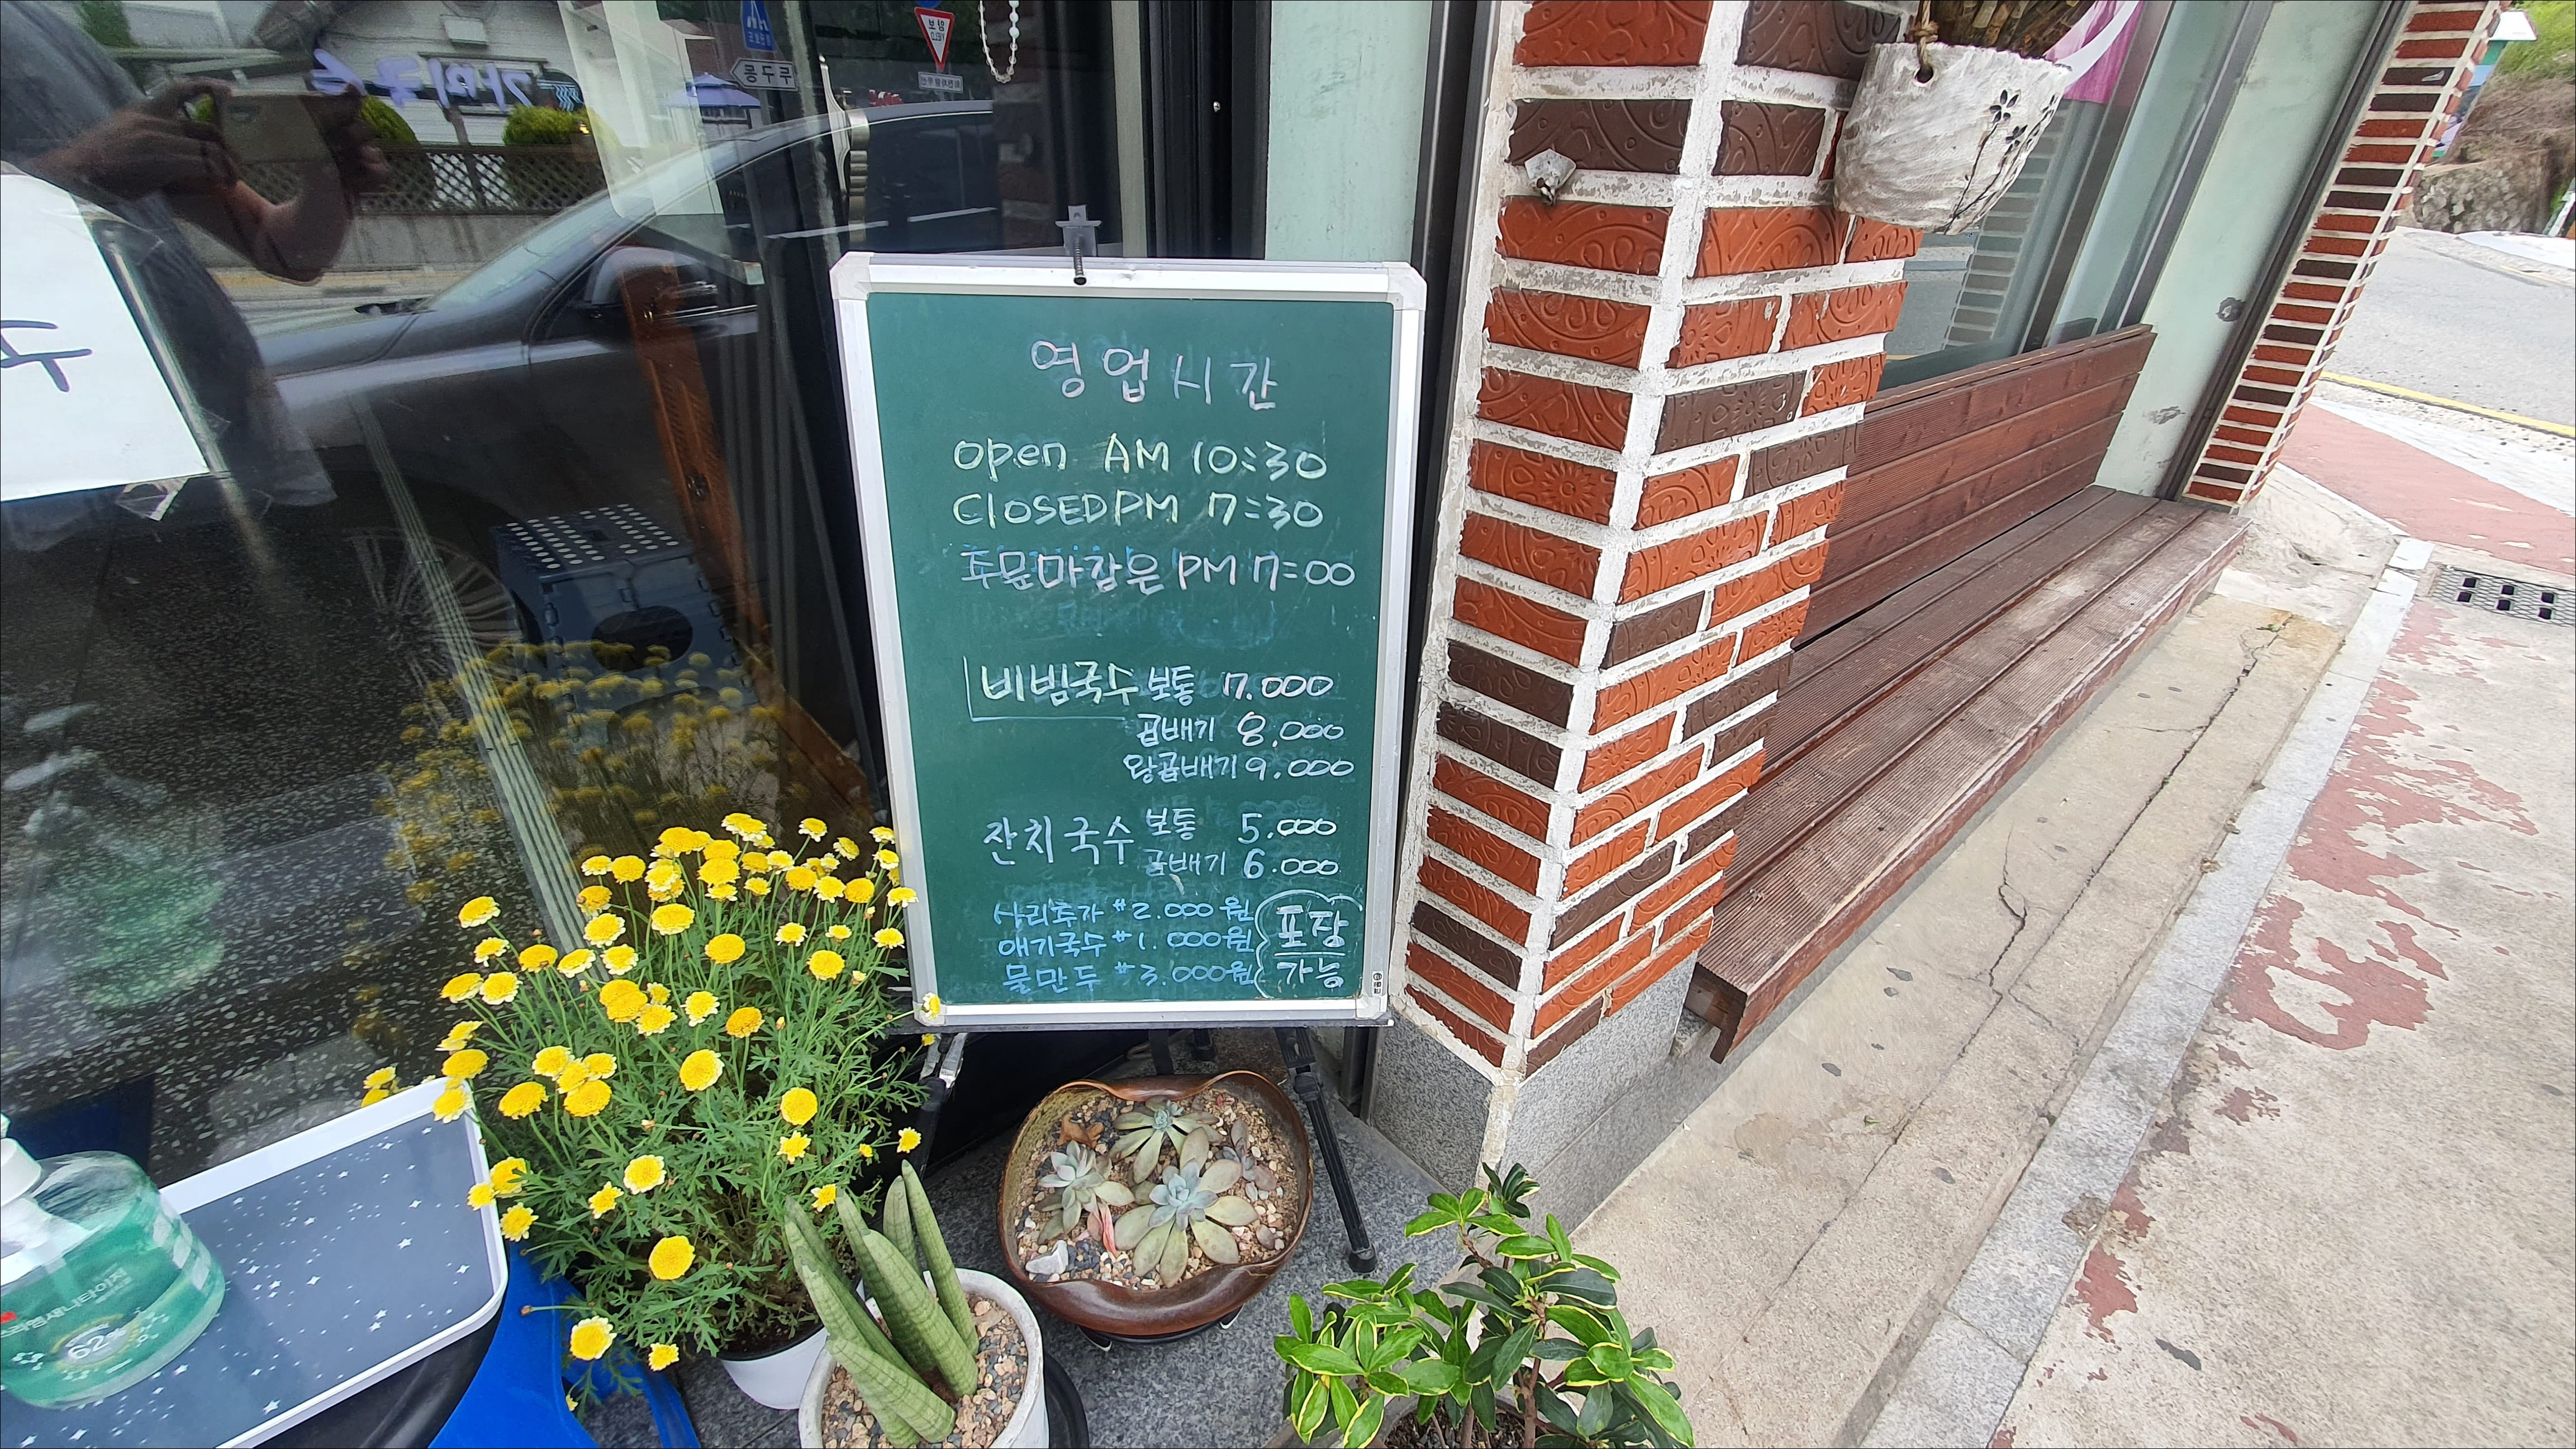 영업시간
open AM 10:30
CLOSED PM 7:30
주문마감은 PM 7:00
비빔국수 보통 7.000
곱배기 8.000
왕곱배기 9.000
잔치국수 보통 5.000
곱배기 6.000
사리추가 #2.000원
애기국수 #1.000원
물만두 #3.000원
포장
가능
새니타이저
62%